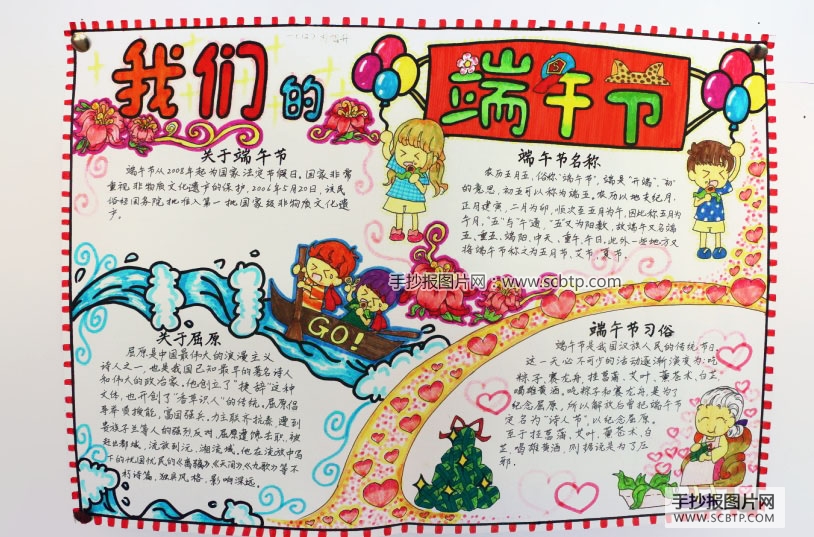 我们的
端午节
关于端午节
端午节从2008年起为国家法定节假日。国家非常
重视非物质文化遗产的保护，2006年5月20日，该民
俗经国务院批准入第一批国家级非物质文化遗
产。
端午节名称
农历五月五，俗称"端午节"，端是"开端"、"初"
的意思，初五可以称为端五。农历以地支纪月，
正月建寅，二月为卯，顺次至五月为午，因此称五月为
午月，"五"与"午"通，"五"又为阳数，故端午又名端
五、重五、端阳、中天、重午、午日，此外一些地方又
将端午节称之为五月节、艾节、夏节。
手抄报图片网：www.scbtp.com
GO!
关于屈原
屈原是中国最伟大的浪漫主义
诗人之一，也是我国已知最早的著名诗人
和伟大的政治家。他创立了"楚辞"这种
文体，也开创了"香草识人"的传统。屈原倡
导举贤授能，富国强兵，力主联齐抗秦，遭到
贵族子兰等人的强烈反对，屈原遭馋去职，被
赶出都城，流放到沅、湘流域，他在流放中写
下的忧国忧民的《离骚》《天问》《九歌》等不
朽诗篇，独具风格，影响深远。
端午节习俗
端午节是我国汉族人民的传统节日，
这一天必不可少的活动逐渐演变为：吃
粽子，赛龙舟，挂菖蒲、艾叶，薰苍术、白芷，
喝雄黄酒。吃粽子和赛龙舟，是为了
纪念屈原，所以解放后曾把端午节
定名为"诗人节"，以纪念屈原。
至于挂菖蒲、艾叶，薰苍术、白
芷，喝雄黄酒，则据说是为了压
邪。
手抄报图片网
WWW.SCBTP.COM